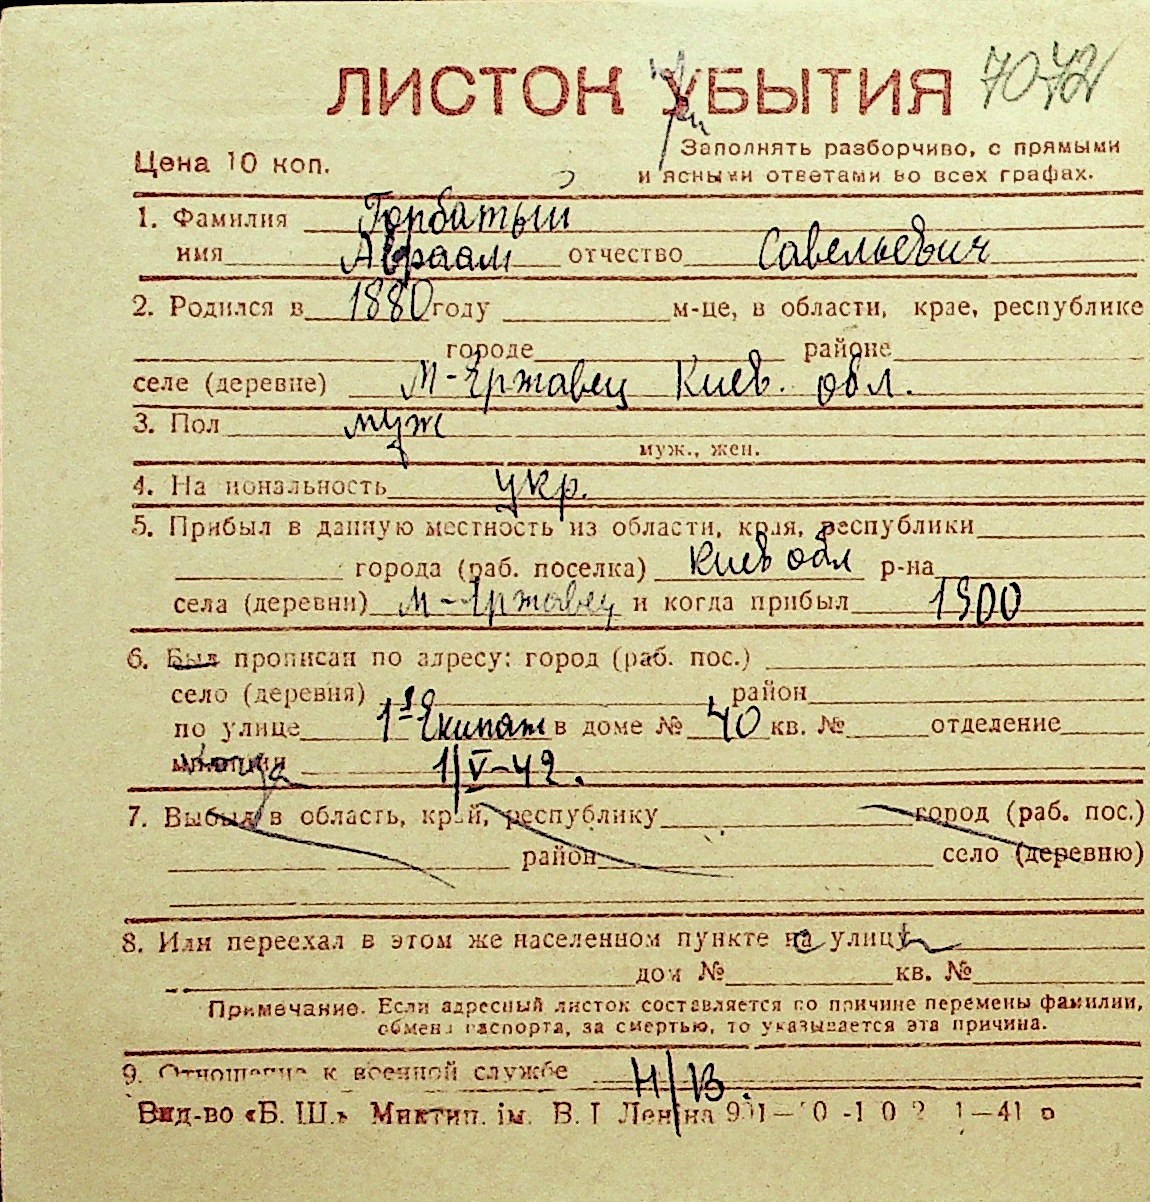 ЛИСТОК УБЫТИЯ 7072
Цена 10 коп. Заполнять разборчиво, с прямыми
и ясными ответами во всех графах.
1. Фамилия Горбатый
имя Авраам отчество Савельевич
2. Родился в 1880 году м-це, в области, крае, республике
городе районе
селе (деревне) М-Ержавец Киев. обл.
3. Пол муж
муж., жен.
4. Национальность укр.
5. Прибыл в данную местность из области, края, республики
города (раб. поселка) Киев обл р-на
села (деревни) М-Ержавец и когда прибыл 1900
6. Был прописан по адресу: город (раб. пос.)
село (деревня) район
по улице 1я Екипаж в доме № 40 кв. № отделение
милиции 1/V-42.
7. Выбыл в область, край, республику город (раб. пос.)
район село (деревню)
8. Или переехал в этом же населенном пункте на улицу
дом № кв. №
Примечание. Если адресный листок составляется по причине перемены фамилии,
обмена паспорта, за смертью, то указывается эта причина.
9. Отношение к военной службе Н/В.
Вид-во «Б. Ш.» Миктип. ім. В. І Леніна